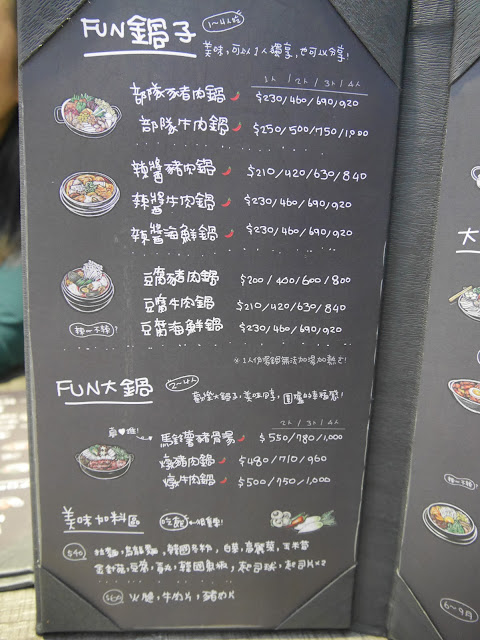 FUN鍋子 1~4人吃
美味,可以1人獨享,也可以分享!
1人 / 2人 / 3人 / 4人
部隊豬肉鍋 $230/460/690/920
部隊牛肉鍋 $250/500/750/1,000
辣醬豬肉鍋 $210/420/630/840
辣醬牛肉鍋 $230/460/690/920
辣醬海鮮鍋 $230/460/690/920
豆腐豬肉鍋 $200/400/600/800
豆腐牛肉鍋 $210/420/630/840
辣-不辣! 豆腐海鮮鍋 $230/460/690/920
※1人份鍋無法加湯加熱さ!
FUN大鍋 2~4人
2人 / 3人 / 4人
馬鈴薯豬骨湯 $550/780/1,000
燉豬肉鍋 $480/710/960
燉牛肉鍋 $500/750/1,000
美味加料區 吃飽
$40 拉麵,烏龍麵,韓國冬粉,白菜,高麗菜,玉米筍
金針菇,豆腐,韓國魚板,起司球,起司片x2
$60 火腿,牛肉片,豬肉片
大
6~9月